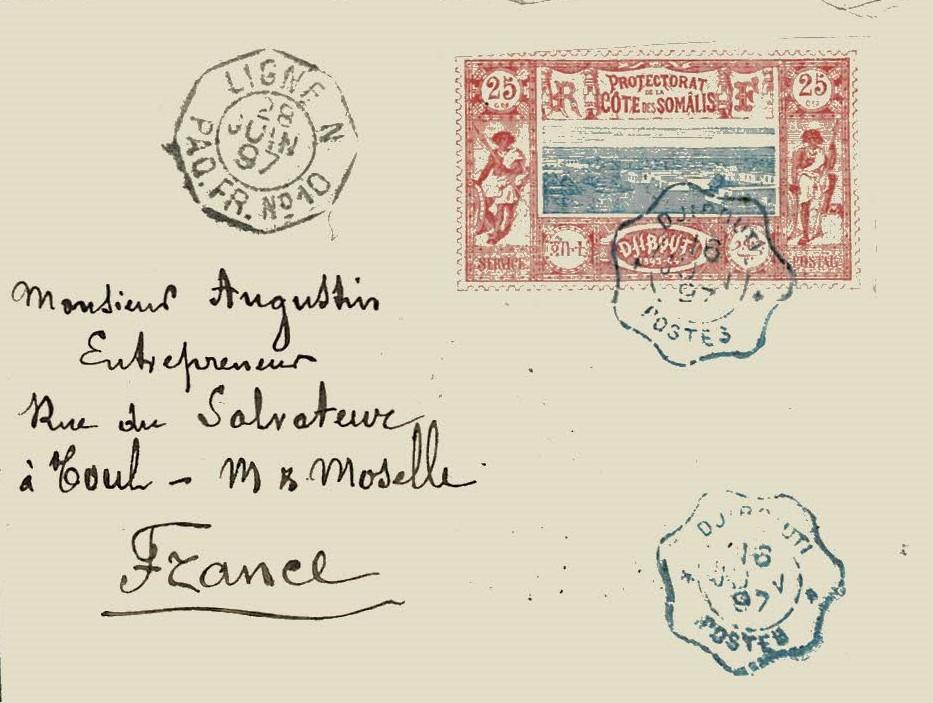 LIGNE N
28
JUIN
97
PAQ. FR. No 10
25
PROTECTORAT
DE LA
CÔTE DES SOMÂLIS
R F
25
SERVICE
DJIBOUTI
POSTAL
DJIBOUTI
16
97
POSTES
Monsieur Augustin
Entrepreneur
Rue du Salvateur
à Toul - M & Moselle
France
DJIBOUTI
16
97
POSTES